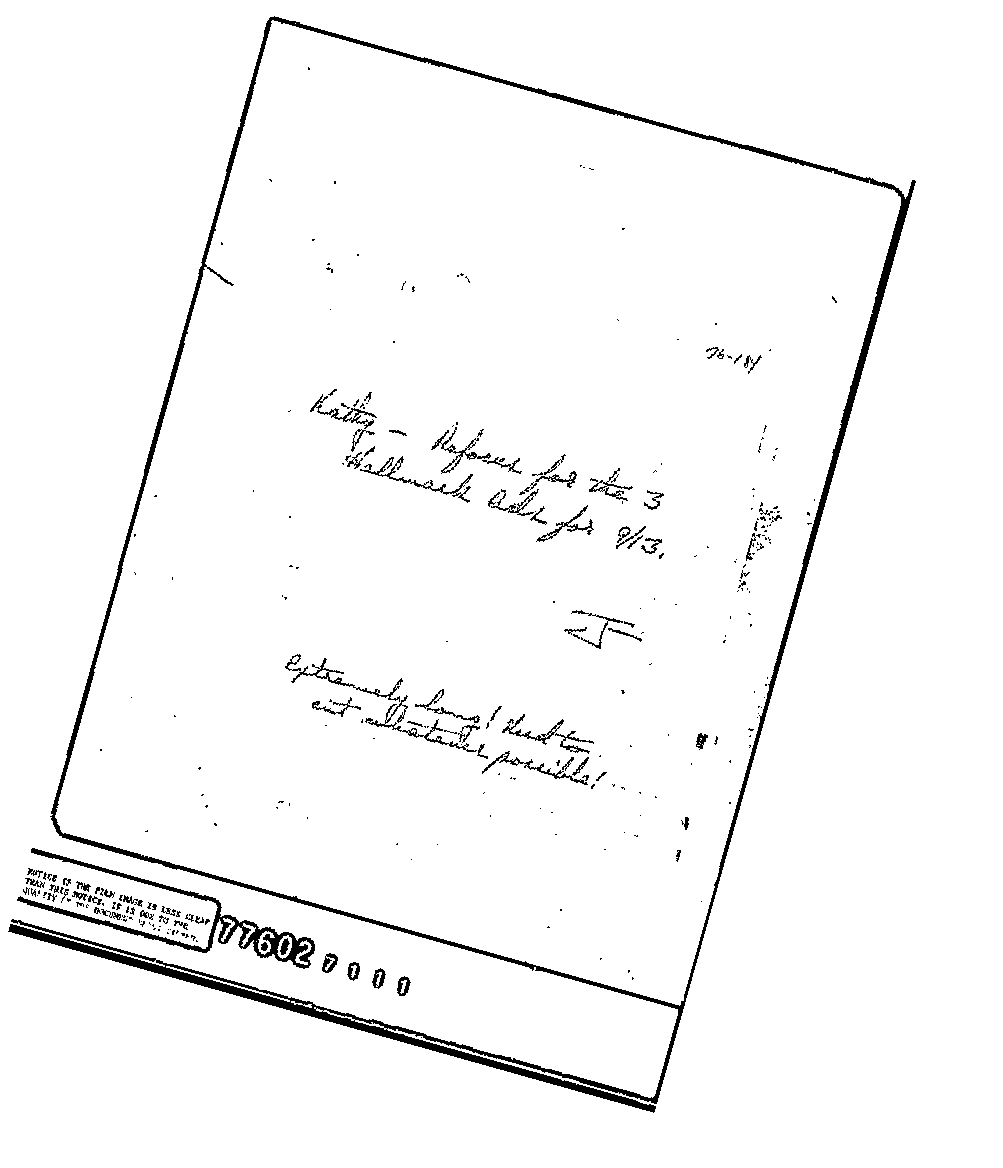 76-184
Kathy - Refocus for the 3
Hallmark Ads for 9/13.
J
Extremely long! Need to
cut whatever possible!
NOTICE IF THE FILM IMAGE IS LESS CLEAR
THAN THIS NOTICE, IT IS DUE TO THE
QUALITY OF THE DOCUMENT
77602 7 1 1 1